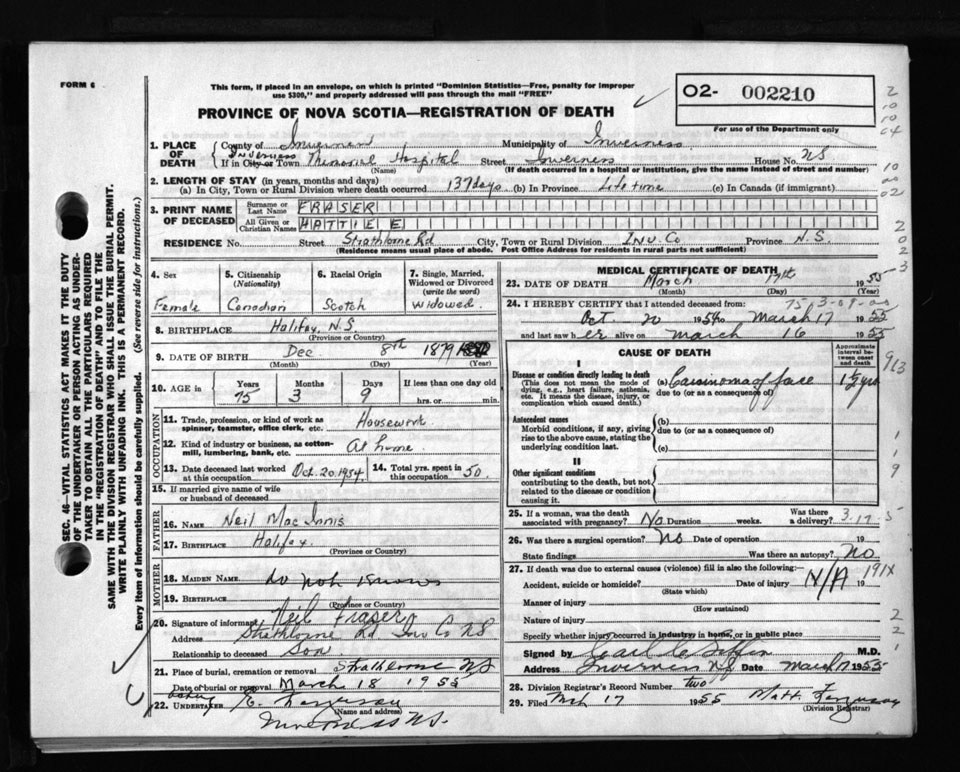 FORM 6
This form, if placed in an envelope, on which is printed "Dominion Statistics—Free, penalty for improper
use $300," and properly addressed will pass through the mail "FREE"
PROVINCE OF NOVA SCOTIA—REGISTRATION OF DEATH
O2- 002210
For use of the Department only
SEC. 46—VITAL STATISTICS ACT MAKES IT THE DUTY
OF THE UNDERTAKER OR PERSON ACTING AS UNDER-
TAKER TO OBTAIN ALL THE PARTICULARS REQUIRED
IN THE "REGISTRATION OF DEATH" AND TO FILE THE
SAME WITH THE DIVISION REGISTRAR WHO SHALL ISSUE THE BURIAL PERMIT.
WRITE PLAINLY WITH UNFADING INK. THIS IS A PERMANENT RECORD.
Every item of information should be carefully supplied. (See reverse side for instructions.)
1. PLACE OF DEATH
County of Inverness Municipality of Inverness
If in City or Town Inverness Memorial Hospital Street Inverness House No. NS
(Name) (If death occurred in a hospital or institution, give name instead of street and number)
2. LENGTH OF STAY (in years, months and days)
(a) In City, Town or Rural Division where death occurred 137 days (b) In Province Life time (c) In Canada (if immigrant)
3. PRINT NAME OF DECEASED
Surname or Last Name FRASER
All Given or Christian Names HATTIE E
RESIDENCE No. Street Strathlorne Rd City, Town or Rural Division Inv. Co Province N.S.
(Residence means usual place of abode. Post Office Address for residents in rural parts not sufficient)
4. Sex Female
5. Citizenship (Nationality) Canadian
6. Racial Origin Scotch
7. Single, Married, Widowed or Divorced (write the word) Widowed
8. BIRTHPLACE Halifax, N.S.
(Province or Country)
9. DATE OF BIRTH Dec 8th 1879
(Month) (Day) (Year)
10. AGE in Years 75 Months 3 Days 9 If less than one day old hrs. or min.
OCCUPATION
11. Trade, profession, or kind of work as spinner, teamster, office clerk, etc. Housework
12. Kind of industry or business, as cotton-mill, lumbering, bank, etc. At home
13. Date deceased last worked at this occupation Oct. 20, 1954
14. Total yrs. spent in this occupation 50
15. If married give name of wife or husband of deceased
FATHER
16. NAME Neil Mac Innis
17. BIRTHPLACE Halifax
(Province or Country)
MOTHER
18. MAIDEN NAME do not know
19. BIRTHPLACE
(Province or Country)
20. Signature of informant Neil Fraser
Address Strathlorne Rd Inv Co NS
Relationship to deceased Son
21. Place of burial, cremation or removal Strathlorne NS
Date of burial or removal March 18 1955
22. UNDERTAKER
(Name and address)
Inverness NS.
MEDICAL CERTIFICATE OF DEATH
23. DATE OF DEATH March 17th 1955
(Month) (Day) (Year)
24. I HEREBY CERTIFY that I attended deceased from:
Oct 20 1954 to March 17 1955
and last saw her alive on March 16 1955
CAUSE OF DEATH
Approximate interval between onset and death
I
Disease or condition directly leading to death
(This does not mean the mode of dying, e.g., heart failure, asthenia, etc. It means the disease, injury, or complication which caused death.)
(a) Carcinoma of face 1½ yrs
due to (or as a consequence of)
Antecedent causes
Morbid conditions, if any, giving rise to the above cause, stating the underlying condition last.
(b)
due to (or as a consequence of)
(c)
II
Other significant conditions
contributing to the death, but not related to the disease or condition causing it.
25. If a woman, was the death associated with pregnancy? No Duration weeks. Was there a delivery?
26. Was there a surgical operation? No Date of operation 19
State findings Was there an autopsy? No
27. If death was due to external causes (violence) fill in also the following:
Accident, suicide or homicide? Date of injury N/A 19
(State which)
Manner of injury
(How sustained)
Nature of injury
Specify whether injury occurred in industry, in home, or in public place
Signed by M.D.
Address Inverness N.S. Date March 17 1955
28. Division Registrar's Record Number two
29. Filed Mch 17 1955 Matt. Ferguson
(Division Registrar)